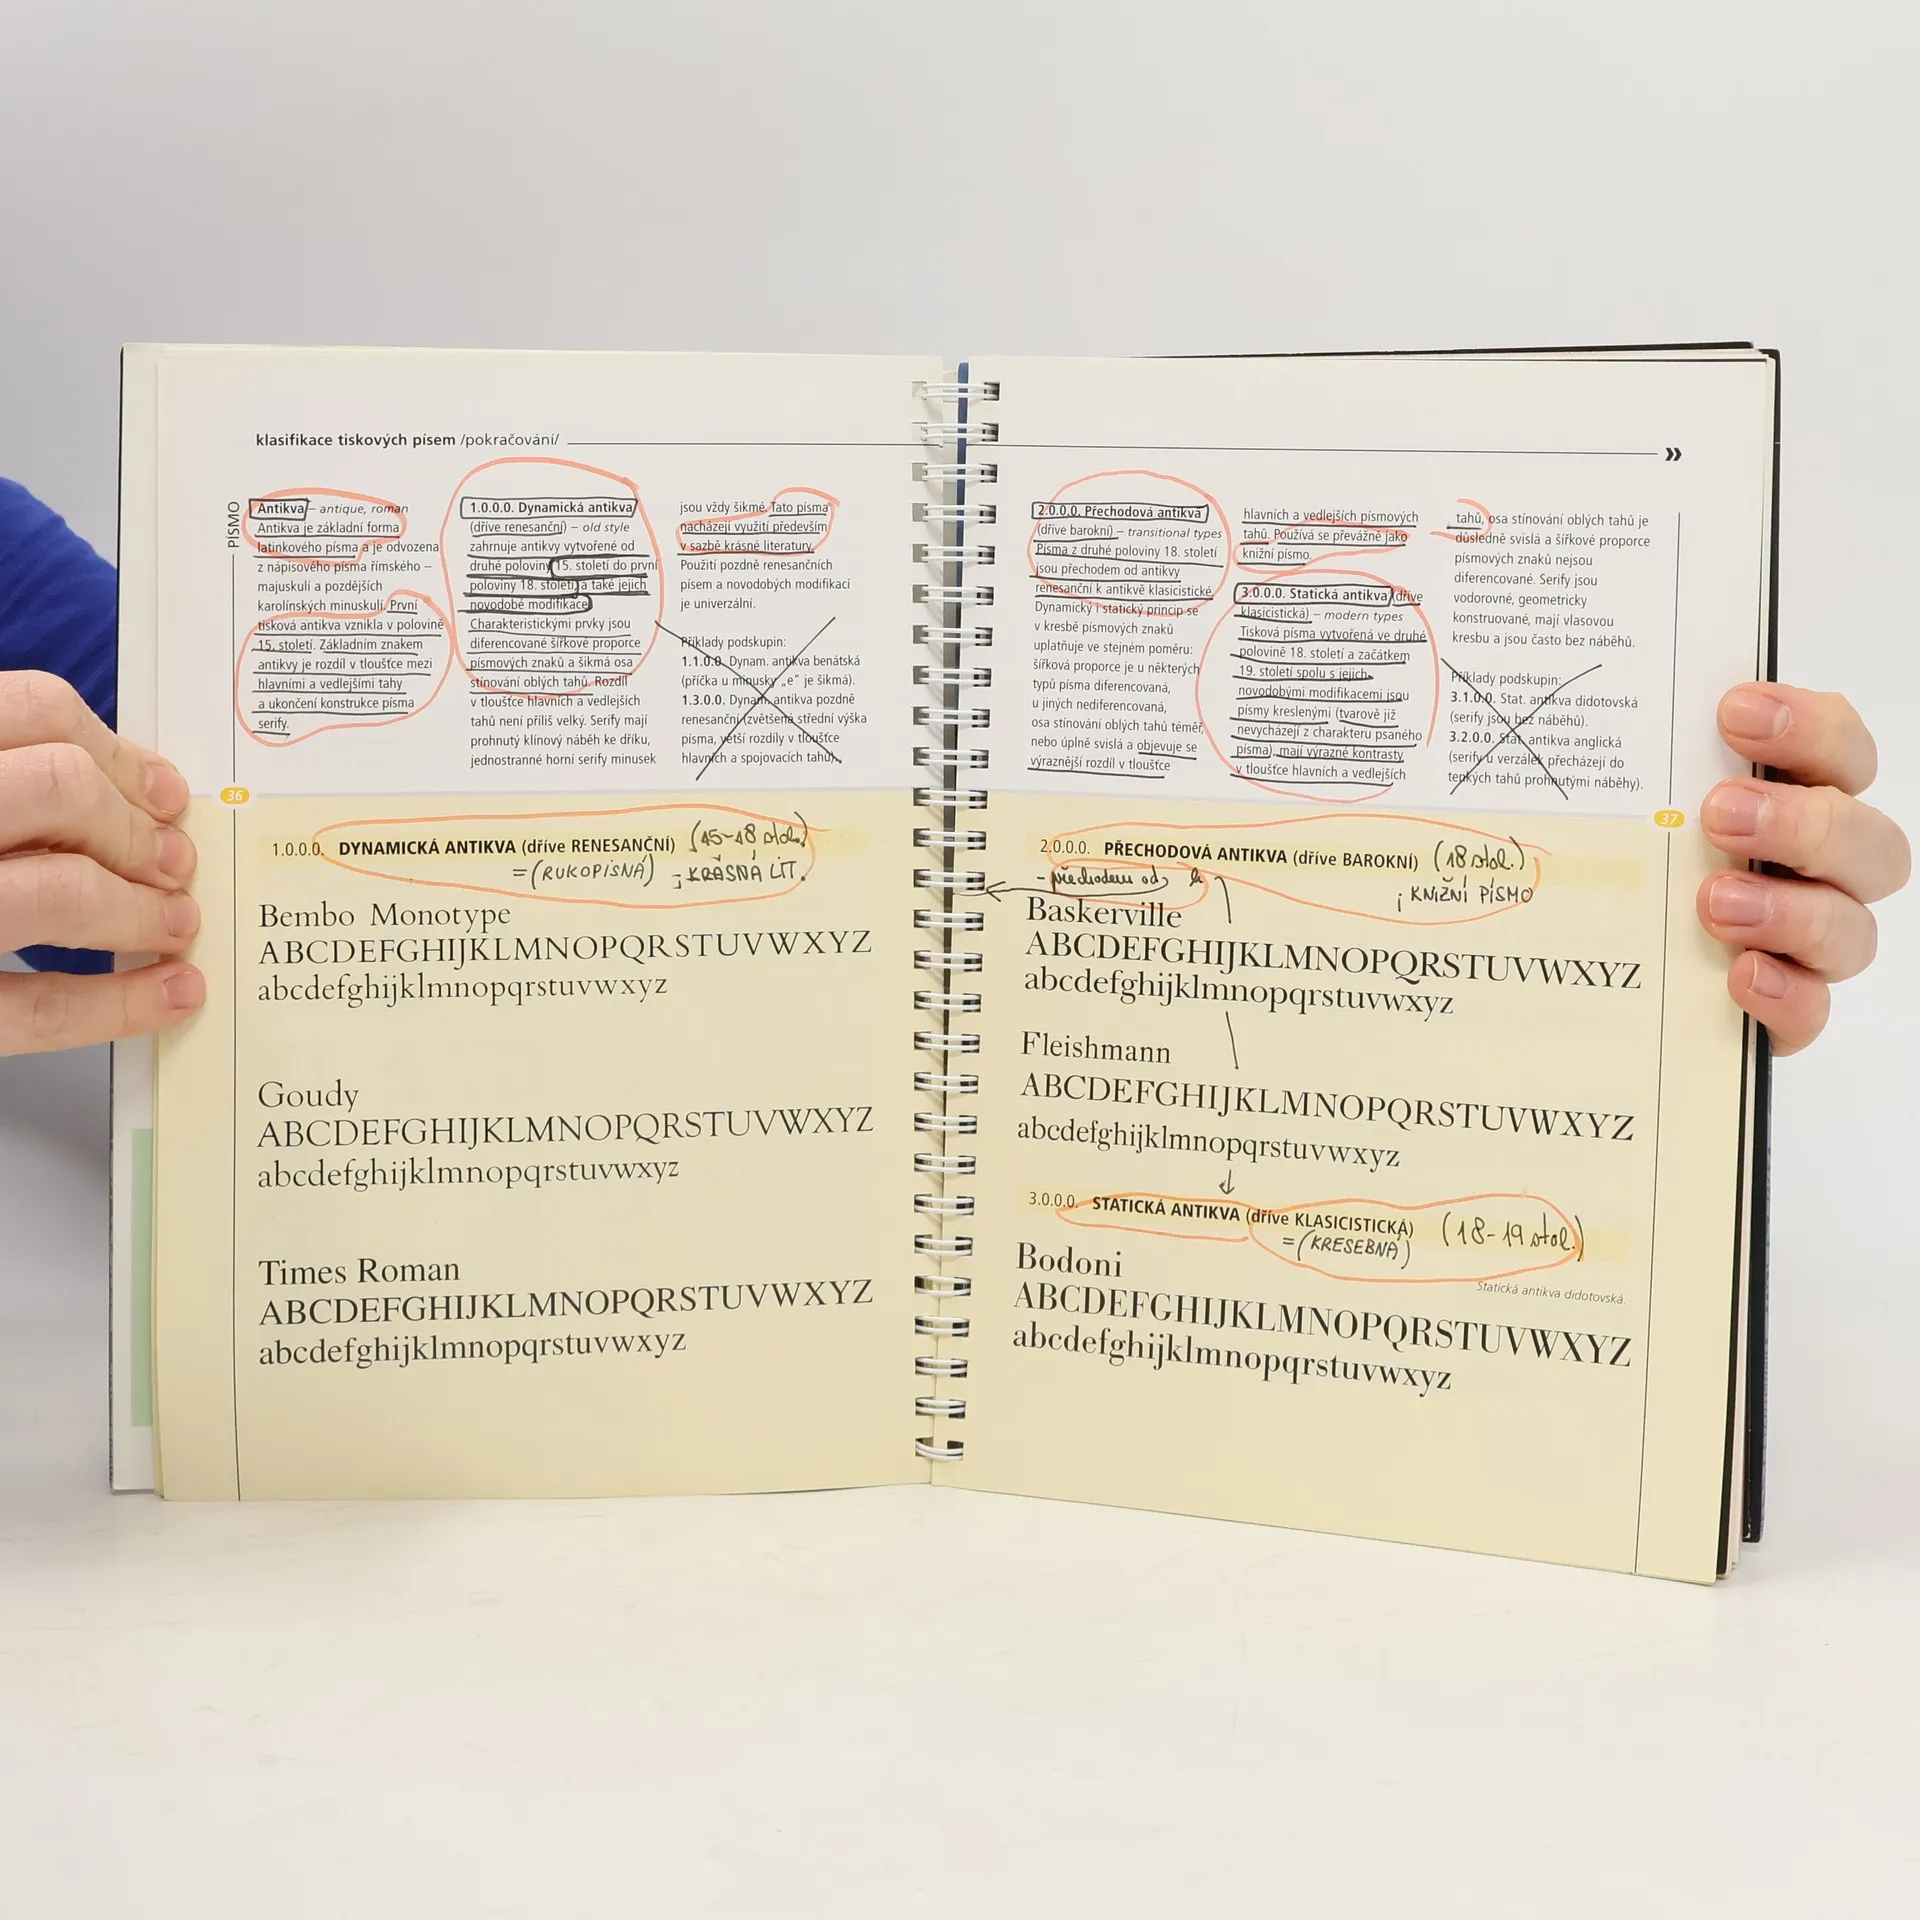 klasifikace tiskových písem /pokračování/
»
PÍSMO
Antikva – antique, roman
Antikva je základní forma
latinkového písma a je odvozena
z nápisového písma římského –
majuskulí a pozdějších
karolínských minuskulí. První
tisková antikva vznikla v polovině
15. století. Základním znakem
antikvy je rozdíl v tloušťce mezi
hlavními a vedlejšími tahy
a ukončení konstrukce písma
serify.
1.0.0.0. Dynamická antikva
(dříve renesanční) – old style
zahrnuje antikvy vytvořené od
druhé poloviny 15. století do první
poloviny 18. století a také jejich
novodobé modifikace.
Charakteristickými prvky jsou
diferencované šířkové proporce
písmových znaků a šikmá osa
stínování oblých tahů. Rozdíl
v tloušťce hlavních a vedlejších
tahů není příliš velký. Serify mají
prohnutý klínový náběh ke dříku,
jednostranné horní serify minusek
jsou vždy šikmé. Tato písma
nacházejí využití především
v sazbě krásné literatury.
Použití pozdně renesančních
písem a novodobých modifikací
je univerzální.
Příklady podskupin:
1.1.0.0. Dynam. antikva benátská
(příčka u minusky „e" je šikmá).
1.3.0.0. Dynam. antikva pozdně
renesanční (zvětšená střední výška
písma, větší rozdíly v tloušťce
hlavních a spojovacích tahů).
36
1.0.0.0. DYNAMICKÁ ANTIKVA (dříve RENESANČNÍ) (15-18 stol.)
=(RUKOPISNÁ) ; KRÁSNÁ LIT.
Bembo Monotype
ABCDEFGHIJKLMNOPQRSTUVWXYZ
abcdefghijklmnopqrstuvwxyz
Goudy
ABCDEFGHIJKLMNOPQRSTUVWXYZ
abcdefghijklmnopqrstuvwxyz
Times Roman
ABCDEFGHIJKLMNOPQRSTUVWXYZ
abcdefghijklmnopqrstuvwxyz
2.0.0.0. Přechodová antikva
(dříve barokní) – transitional types
Písma z druhé poloviny 18. století
jsou přechodem od antikvy
renesanční k antikvě klasicistické.
Dynamický i statický princip se
v kresbě písmových znaků
uplatňuje ve stejném poměru:
šířková proporce je u některých
typů písma diferencovaná,
u jiných nediferencovaná,
osa stínování oblých tahů téměř,
nebo úplně svislá a objevuje se
výraznější rozdíl v tloušťce
hlavních a vedlejších písmových
tahů. Používá se převážně jako
knižní písmo.
3.0.0.0. Statická antikva (dříve
klasicistická) – modern types
Tisková písma vytvořená ve druhé
polovině 18. století a začátkem
19. století spolu s jejich
novodobými modifikacemi jsou
písmy kreslenými (tvarově již
nevycházejí z charakteru psaného
písma), mají výrazné kontrasty
v tloušťce hlavních a vedlejších
tahů, osa stínování oblých tahů je
důsledně svislá a šířkové proporce
písmových znaků nejsou
diferencované. Serify jsou
vodorovné, geometricky
konstruované, mají vlasovou
kresbu a jsou často bez náběhů.
Příklady podskupin:
3.1.0.0. Stat. antikva didotovská
(serify jsou bez náběhů).
3.2.0.0. Stat. antikva anglická
(serify u verzálek přecházejí do
tenkých tahů prohnutými náběhy).
37
2.0.0.0. PŘECHODOVÁ ANTIKVA (dříve BAROKNÍ) (18 stol.)
- přechodem od k ; KNIŽNÍ PÍSMO
Baskerville
ABCDEFGHIJKLMNOPQRSTUVWXYZ
abcdefghijklmnopqrstuvwxyz
Fleishmann
ABCDEFGHIJKLMNOPQRSTUVWXYZ
abcdefghijklmnopqrstuvwxyz
3.0.0.0. STATICKÁ ANTIKVA (dříve KLASICISTICKÁ) (18-19 stol.)
=(KRESEBNÁ)
Bodoni
Statická antikva didotovská.
ABCDEFGHIJKLMNOPQRSTUVWXYZ
abcdefghijklmnopqrstuvwxyz